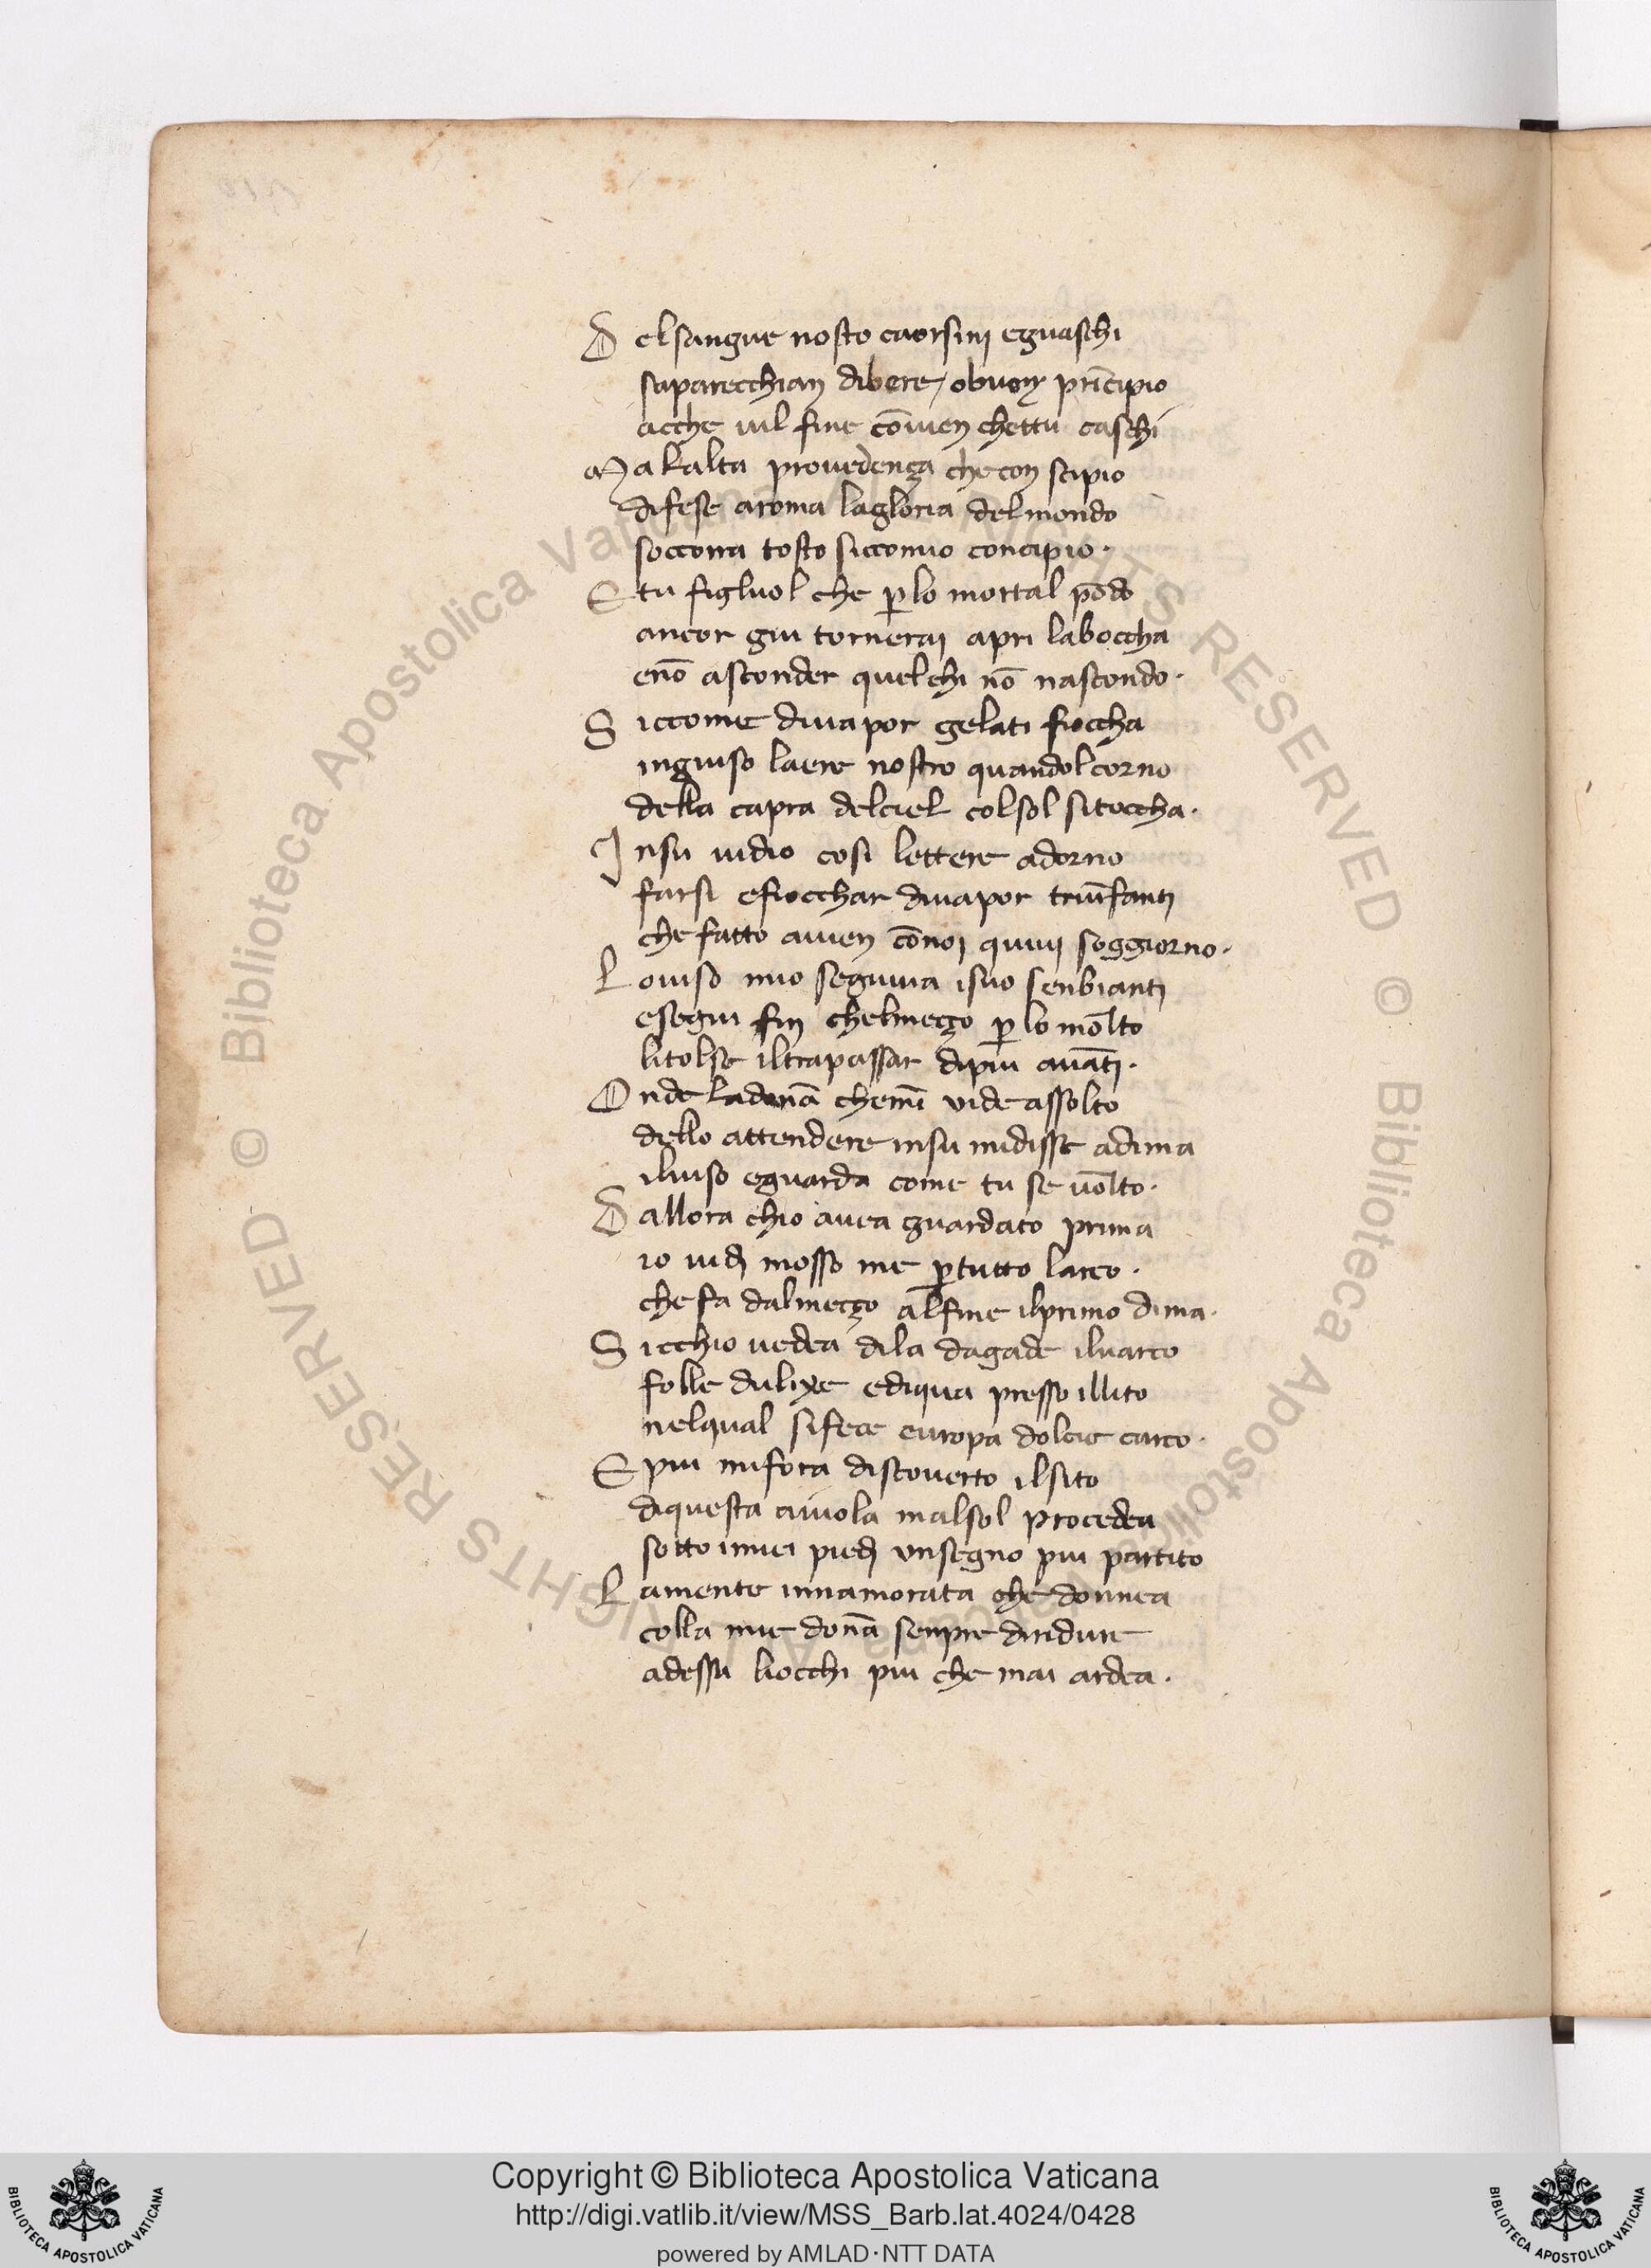 D el sangue nosto caorsini eguaschi
saparecchian dibere / obuon prīcipio
acche uil fine cōuien chettu caschi
M a lalta prouedença che con scipio
difese aroma lagloria del mondo
soccorra tosto siccomio concipio.
E tu figluol che p̱ lo mortal pōdo
ancor giu tornerai apri laboccha
enō asconder quel chi nō nascondo.
S iccome diuapor gelati fioccha
ingiuso laere nostro quandol corno
della capra delciel colsol sitoccha.
I nsu uidio cosi lettere adorno
farsi efiocchar diuapor triūfanti
che fatto auien cōnoi quiui soggiorno.
L ouiso mio seguiua isuo senbianti
esegui fin chelmeçço p̱ lo mōlto
litolse iltrapassar dipiu auāti.
O nde ladonā chemī vide assolto
dello attendere insu midisse adima
iluiso eguarda come tu se uōlto.
D allora chio auea guardato prima
io uidi mosso me p̱ tutto larco.
che fa dalmeçço alfine ilprimo dima.
S icchio uedea dila dagade iluarco
folle dulixe ediqua presso illito
nelqual sifece europa dolcie carco.
E piu mifora discouerto ilsito
diquesta aiuola malsol procedea
sotto imiei piedi vnsegno piu partito
L amente innamorata che donnea
colla mie donā senpre diridure
adessa liocchi piu che mai ardea.
Copyright © Biblioteca Apostolica Vaticana
http://digi.vatlib.it/view/MSS_Barb.lat.4024/0428
powered by AMLAD·NTT DATA
BIBLIOTECA APOSTOLICA VATICANA
BIBLIOTECA APOSTOLICA VATICANA
© Biblioteca Apostolica Vaticana ALL RIGHTS RESERVED © Biblioteca Apostolica Vaticana ALL RIGHTS RESERVED